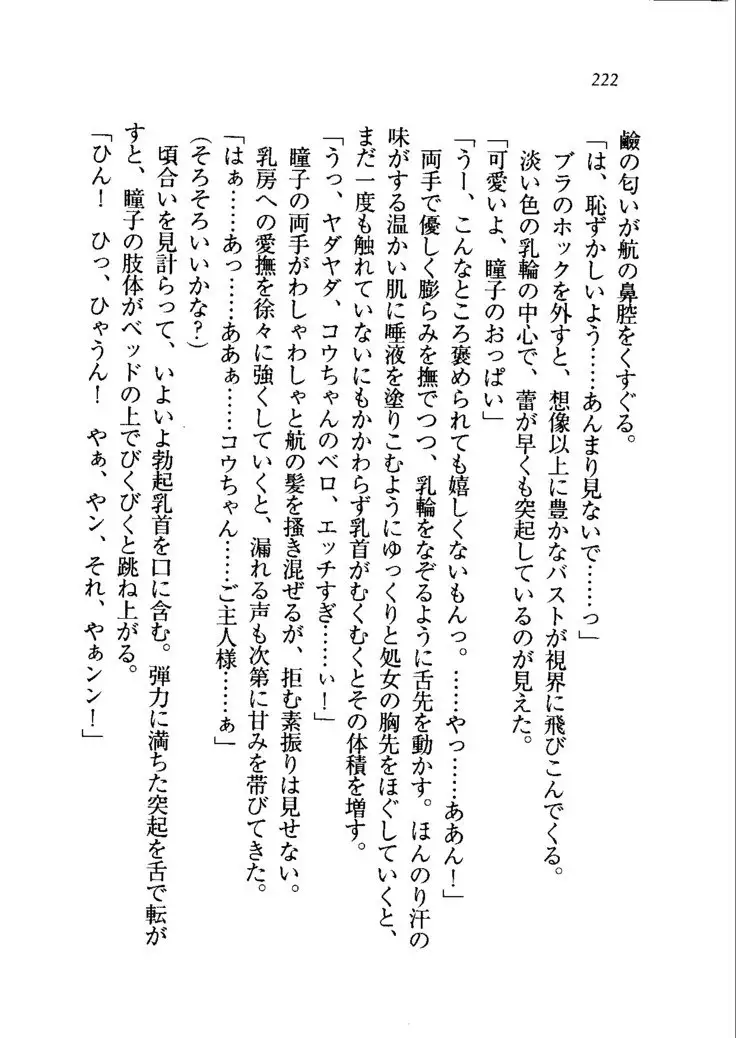 222
鹸の匂いが航の鼻腔をくすぐる。
「は、恥ずかしいよう……あんまり見ないで……っ」
ブラのホックを外すと、想像以上に豊かなバストが視界に飛びこんでくる。
淡い色の乳輪の中心で、蕾が早くも突起しているのが見えた。
「可愛いよ、瞳子のおっぱい」
「うー、こんなところ褒められても嬉しくないもんっ。……やっ……ああん！」
両手で優しく膨らみを撫でつつ、乳輪をなぞるように舌先を動かす。ほんのり汗の
味がする温かい肌に唾液を塗りこむようにゆっくりと処女の胸先をほぐしていくと、
まだ一度も触れていないにもかかわらず乳首がむくむくとその体積を増す。
「うっ、ヤダヤダ、コウちゃんのベロ、エッチすぎ……ぃ！」
瞳子の両手がわしゃわしゃと航の髪を掻き混ぜるが、拒む素振りは見せない。
乳房への愛撫を徐々に強くしていくと、漏れる声も次第に甘みを帯びてきた。
「はぁ……あっ……ああぁ……コウちゃん……ご主人様……ぁ」
(そろそろいいかな？)
頃合いを見計らって、いよいよ勃起乳首を口に含む。弾力に満ちた突起を舌で転が
すと、瞳子の肢体がベッドの上でびくびくと跳ね上がる。
「ひん！　ひっ、ひゃうん！　やぁ、やン、それ、やぁンン！」